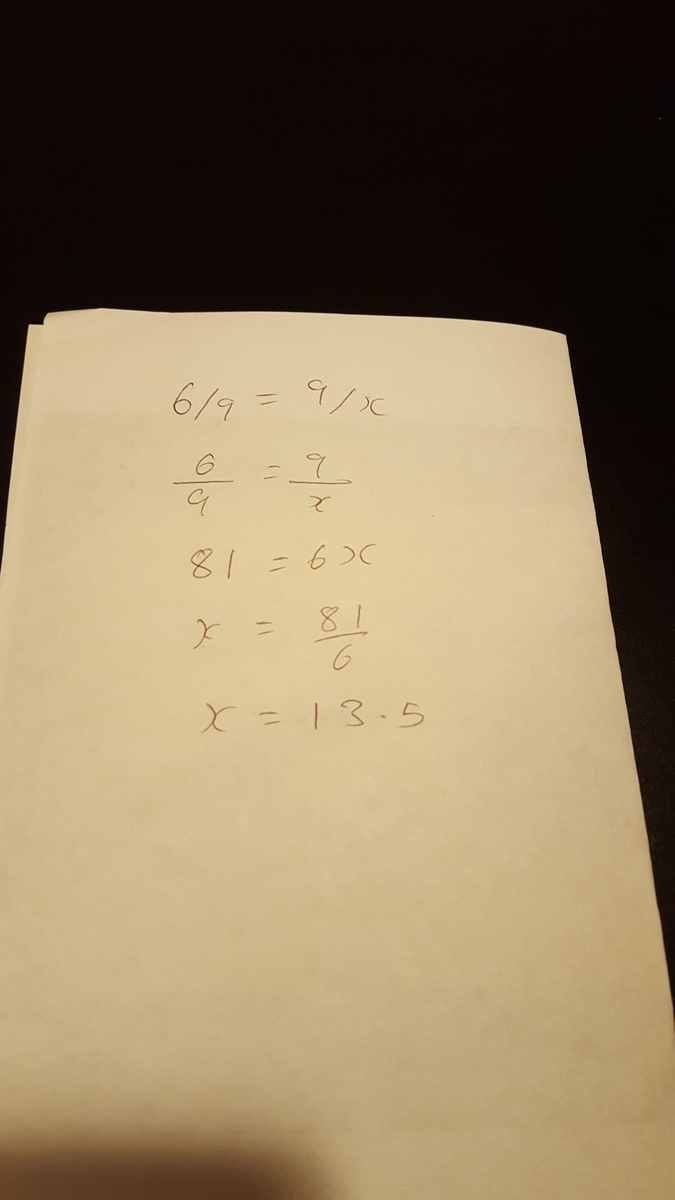 6/9 = 9/x
6/9 = 9/x
81 = 6x
x = 81/6
x = 13.5